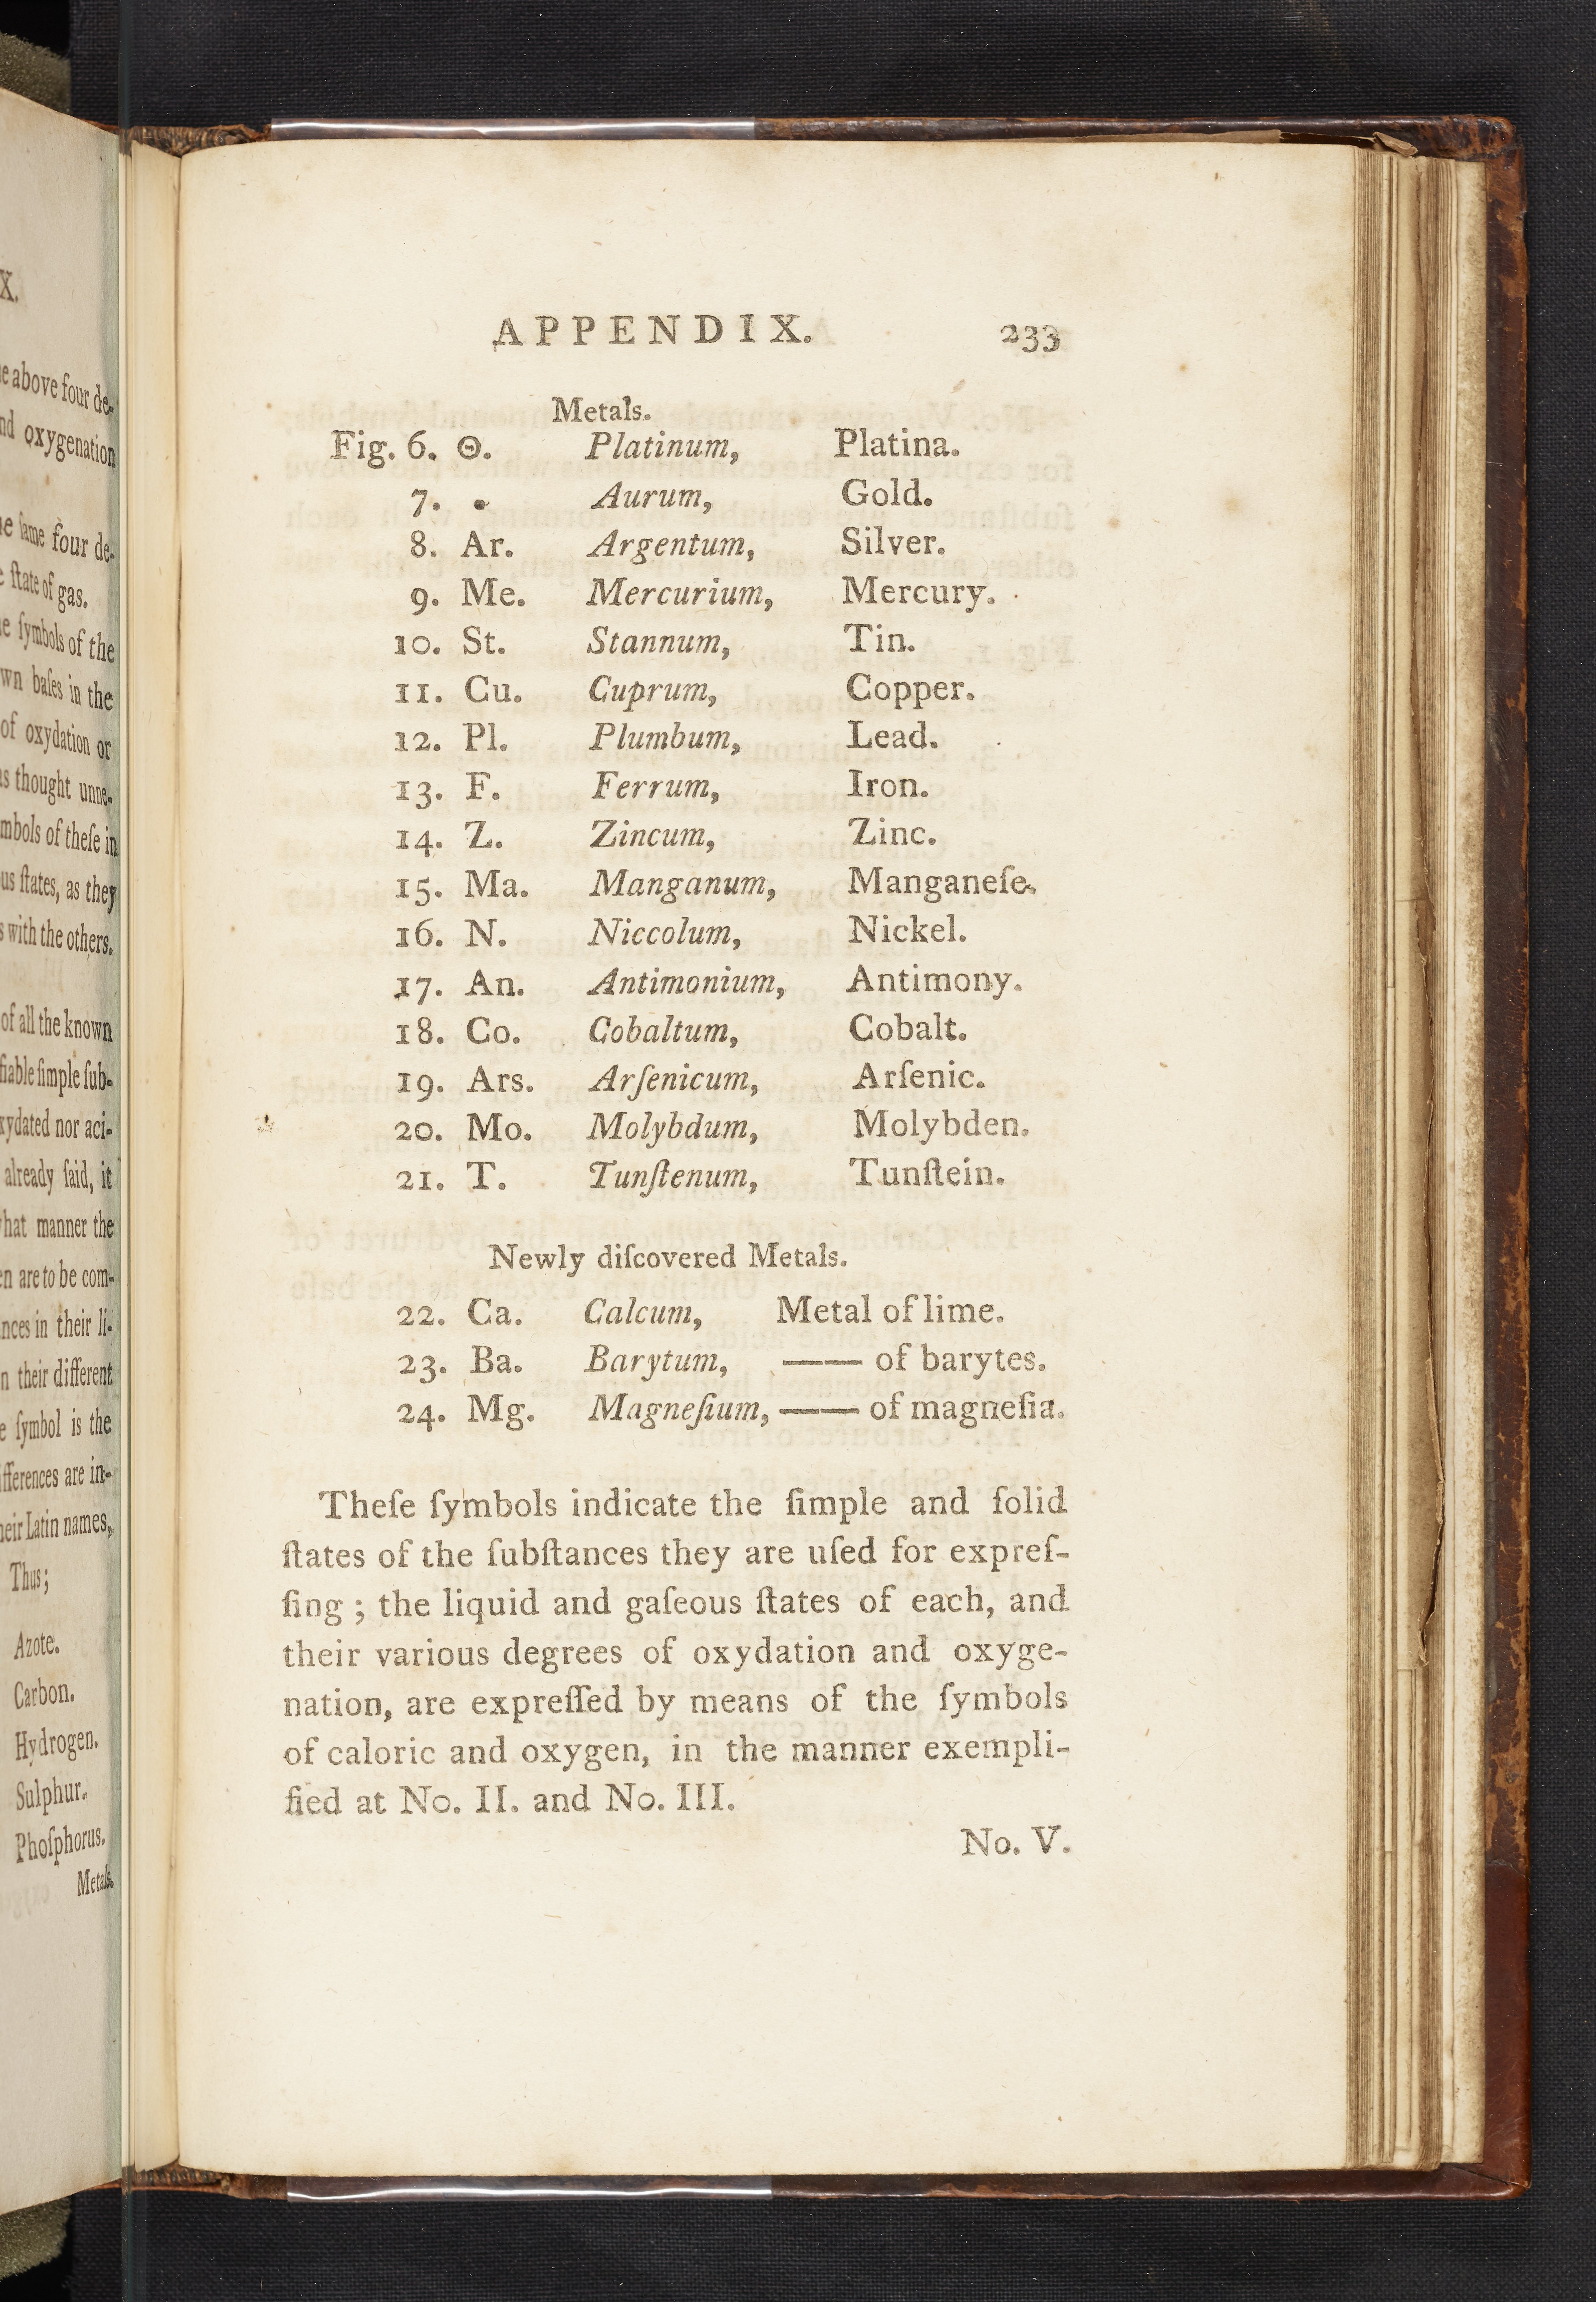 X.
e above four de-
nd oxygenation
e ſame four de-
e ſtate of gas.
e ſymbols of the
wn baſes in the
of oxydation or
as thought unne-
mbols of theſe in
us ſtates, as they
s with the others.
of all the known
fiable ſimple ſub-
xydated nor aci-
already ſaid, it
hat manner the
en are to be com-
nces in their li-
n their different
e ſymbol is the
ifferences are in-
heir Latin names,
Thus;
Azote.
Carbon.
Hydrogen.
Sulphur.
Phoſphorus.
Metals.
APPENDIX. 233
Metals.
Fig. 6. Θ. Platinum, Platina.
7. • Aurum, Gold.
8. Ar. Argentum, Silver.
9. Me. Mercurium, Mercury.
10. St. Stannum, Tin.
11. Cu. Cuprum, Copper.
12. Pl. Plumbum, Lead.
13. F. Ferrum, Iron.
14. Z. Zincum, Zinc.
15. Ma. Manganum, Manganeſe.
16. N. Niccolum, Nickel.
17. An. Antimonium, Antimony.
18. Co. Cobaltum, Cobalt.
19. Ars. Arſenicum, Arſenic.
20. Mo. Molybdum, Molybden.
21. T. Tunſtenum, Tunſtein.
Newly diſcovered Metals.
22. Ca. Calcum, Metal of lime.
23. Ba. Barytum, —— of barytes.
24. Mg. Magneſium, —— of magneſia.
Theſe ſymbols indicate the ſimple and ſolid
ſtates of the ſubſtances they are uſed for expreſ-
ſing ; the liquid and gaſeous ſtates of each, and
their various degrees of oxydation and oxyge-
nation, are expreſſed by means of the ſymbols
of caloric and oxygen, in the manner exempli-
fied at No. II. and No. III.
No. V.